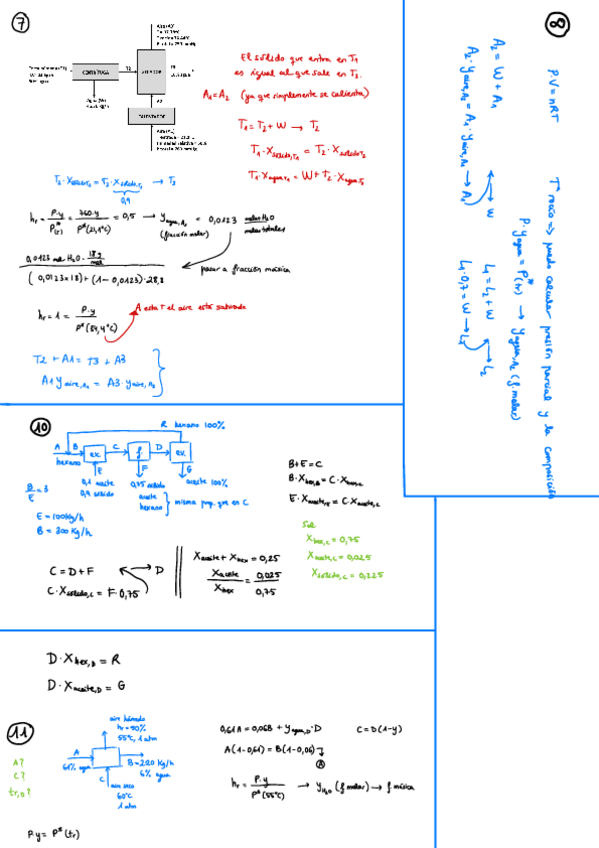 7
CENTRIFUGA
T2
A2
El sólido que entra en T1
es igual al que sale en T3.
A1 = A2 (ya que simplemente se calienta)
T1 = T2 + W → T2
T1 · Xsólido,T1 = T2 · XsólidoT2
T1 · XaguaT1 = W + T2 · XaguaT2
→ T2
0,9
hr = P·y / P*(t) = 760·y / P*(21,1°C) = 0,5 → yagua,A2 = 0,0123 moles H2O / moles totales
(fracción molar)
0,0123 mol H2O · 18 g/mol
(0,0123×18) + (1 − 0,0123) · 28,8
pasar a fracción másica
hr = 1 = P·y / P*(54,4°C)
A esta T el aire está saturado
T2 + A1 = T3 + A3
A1 yaire,A1 = A3 · yaire,A3
8
P·V = nRT
T rocío => puedo calcular presión parcial y la composición
P·yagua = P*(tr) → yagua,A2 (f molar)
A2 = W + A1
A2 · yaire,A2 = A1 · yaire,A1 → A1
W
L1 = L2 + W
L1 · 0,7 = W → L1
L2
10
R hexano 100%
A B ex C f D ex
hexano
E F G
0,1 aceite
0,9 sólido
0,75 sólido
aceite
hexano
misma prop. que en C
aceite 100%
B/E = 3
E = 100 kg/h
B = 300 kg/h
B + E = C
B · Xhex,B = C · Xhex,C
E · Xaceite,E = C · Xaceite,C
Sol
Xhex,C = 0,75
Xaceite,C = 0,025
Xsólido,C = 0,225
C = D + F
→ D
C · Xsólido,C = F · 0,75
Xaceite + Xhex = 0,25
Xaceite / Xhex = 0,025 / 0,75
D · Xhex,D = R
D · Xaceite,D = G
11
A?
C?
tr,D?
aire húmedo
hr = 50%
55°C, 1 atm
A
61% agua
B = 220 kg/h
6% agua
C
aire seco
60°C
1 atm
0,61A = 0,06B + yagua,D · D
C = D(1−y)
A(1−0,61) = B(1−0,06)
A
hr = P·y / P*(55°C) → yH2O (f molar) → f másica
P·y = P*(tr)